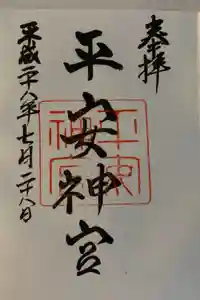 奉拝
平安神宮
平安神宮
平成二十八年七月二十八日